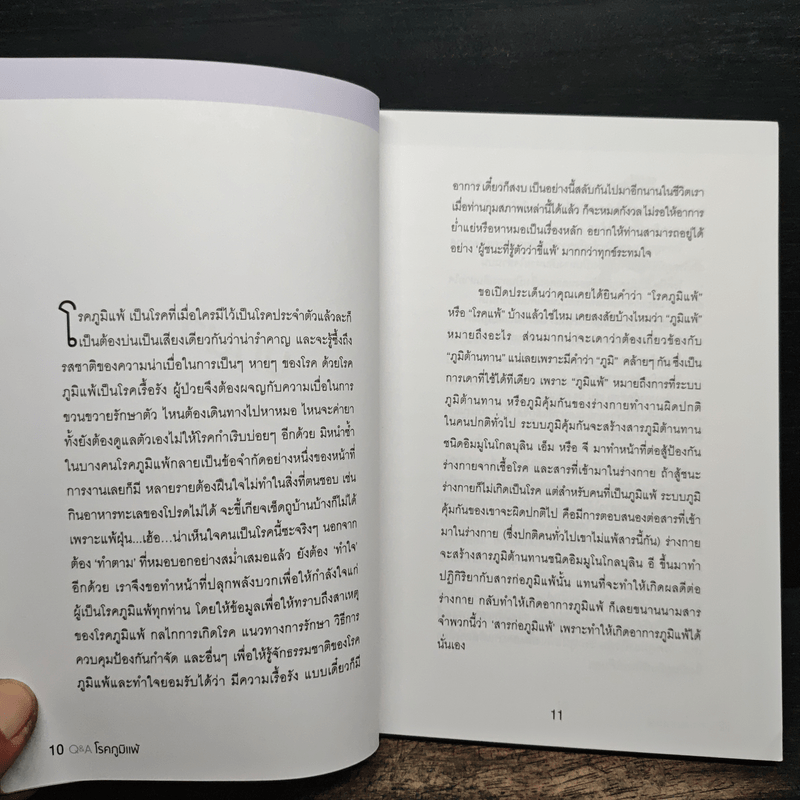 โรคภูมิแพ้ เป็นโรคที่เมื่อใครมีไว้เป็นโรคประจำตัวแล้วละก็
เป็นต้องบ่นเป็นเสียงเดียวกันว่าน่ารำคาญ และจะรู้ซึ้งถึง
รสชาติของความน่าเบื่อในการเป็นๆ หายๆ ของโรค ด้วยโรค
ภูมิแพ้เป็นโรคเรื้อรัง ผู้ป่วยจึงต้องผจญกับความเบื่อในการ
ขวนขวายรักษาตัว ไหนต้องเดินทางไปหาหมอ ไหนจะค่ายา
ทั้งยังต้องดูแลตัวเองไม่ให้โรคกำเริบบ่อยๆ อีกด้วย มิหนำซ้ำ
ในบางคนโรคภูมิแพ้กลายเป็นข้อจำกัดอย่างหนึ่งของหน้าที่
การงานเลยก็มี หลายรายต้องฝืนใจไม่ทำในสิ่งที่ตนชอบ เช่น
กินอาหารทะเลของโปรดไม่ได้ จะขี้เกียจเช็ดถูบ้านบ้างก็ไม่ได้
เพราะแพ้ฝุ่น...เฮ้อ...น่าเห็นใจคนเป็นโรคนี้ซะจริงๆ นอกจาก
ต้อง ‘ทำตาม’ ที่หมอบอกอย่างสม่ำเสมอแล้ว ยังต้อง ‘ทำใจ’
อีกด้วย เราจึงขอทำหน้าที่ปลุกพลังบวกเพื่อให้กำลังใจแก่
ผู้เป็นโรคภูมิแพ้ทุกท่าน โดยให้ข้อมูลเพื่อให้ทราบถึงสาเหตุ
ของโรคภูมิแพ้ กลไกการเกิดโรค แนวทางการรักษา วิธีการ
ควบคุมป้องกันกำจัด และอื่นๆ เพื่อให้รู้จักธรรมชาติของโรค
ภูมิแพ้และทำใจยอมรับได้ว่า มีความเรื้อรัง แบบเดี๋ยวก็มี
10 Q&A โรคภูมิแพ้
อาการ เดี๋ยวก็สงบ เป็นอย่างนี้สลับกันไปมาอีกนานในชีวิตเรา
เมื่อท่านกุมสภาพเหล่านี้ได้แล้ว ก็จะหมดกังวล ไม่รอให้อาการ
ย่ำแย่หรือหาหมอเป็นเรื่องหลัก อยากให้ท่านสามารถอยู่ได้
อย่าง ‘ผู้ชนะที่รู้ตัวว่าขี้แพ้’ มากกว่าทุกข์ระทมใจ
ขอเปิดประเด็นว่าคุณเคยได้ยินคำว่า “โรคภูมิแพ้”
หรือ “โรคแพ้” บ้างแล้วใช่ไหม เคยสงสัยบ้างไหมว่า “ภูมิแพ้”
หมายถึงอะไร ส่วนมากน่าจะเดาว่าต้องเกี่ยวข้องกับ
“ภูมิต้านทาน” แน่เลยเพราะมีคำว่า “ภูมิ” คล้ายๆ กัน ซึ่งเป็น
การเดาที่ใช้ได้ทีเดียว เพราะ “ภูมิแพ้” หมายถึงการที่ระบบ
ภูมิต้านทาน หรือภูมิคุ้มกันของร่างกายทำงานผิดปกติ
ในคนปกติทั่วไป ระบบภูมิคุ้มกันจะสร้างสารภูมิต้านทาน
ชนิดอิมมูโนโกลบุลิน เอ็ม หรือ จี มาทำหน้าที่ต่อสู้ป้องกัน
ร่างกายจากเชื้อโรค และสารที่เข้ามาในร่างกาย ถ้าสู้ชนะ
ร่างกายก็ไม่เกิดเป็นโรค แต่สำหรับคนที่เป็นภูมิแพ้ ระบบภูมิ
คุ้มกันของเขาจะผิดปกติไป คือมีการตอบสนองต่อสารที่เข้า
มาในร่างกาย (ซึ่งปกติคนทั่วไปเขาไม่แพ้สารนี้กัน) ร่างกาย
จะสร้างสารภูมิต้านทานชนิดอิมมูโนโกลบุลิน อี ขึ้นมาทำ
ปฏิกิริยากับสารก่อภูมิแพ้นั้น แทนที่จะทำให้เกิดผลดีต่อ
ร่างกาย กลับทำให้เกิดอาการภูมิแพ้ ก็เลยขนานนามสาร
จำพวกนี้ว่า ‘สารก่อภูมิแพ้’ เพราะทำให้เกิดอาการภูมิแพ้ได้
นั่นเอง
11